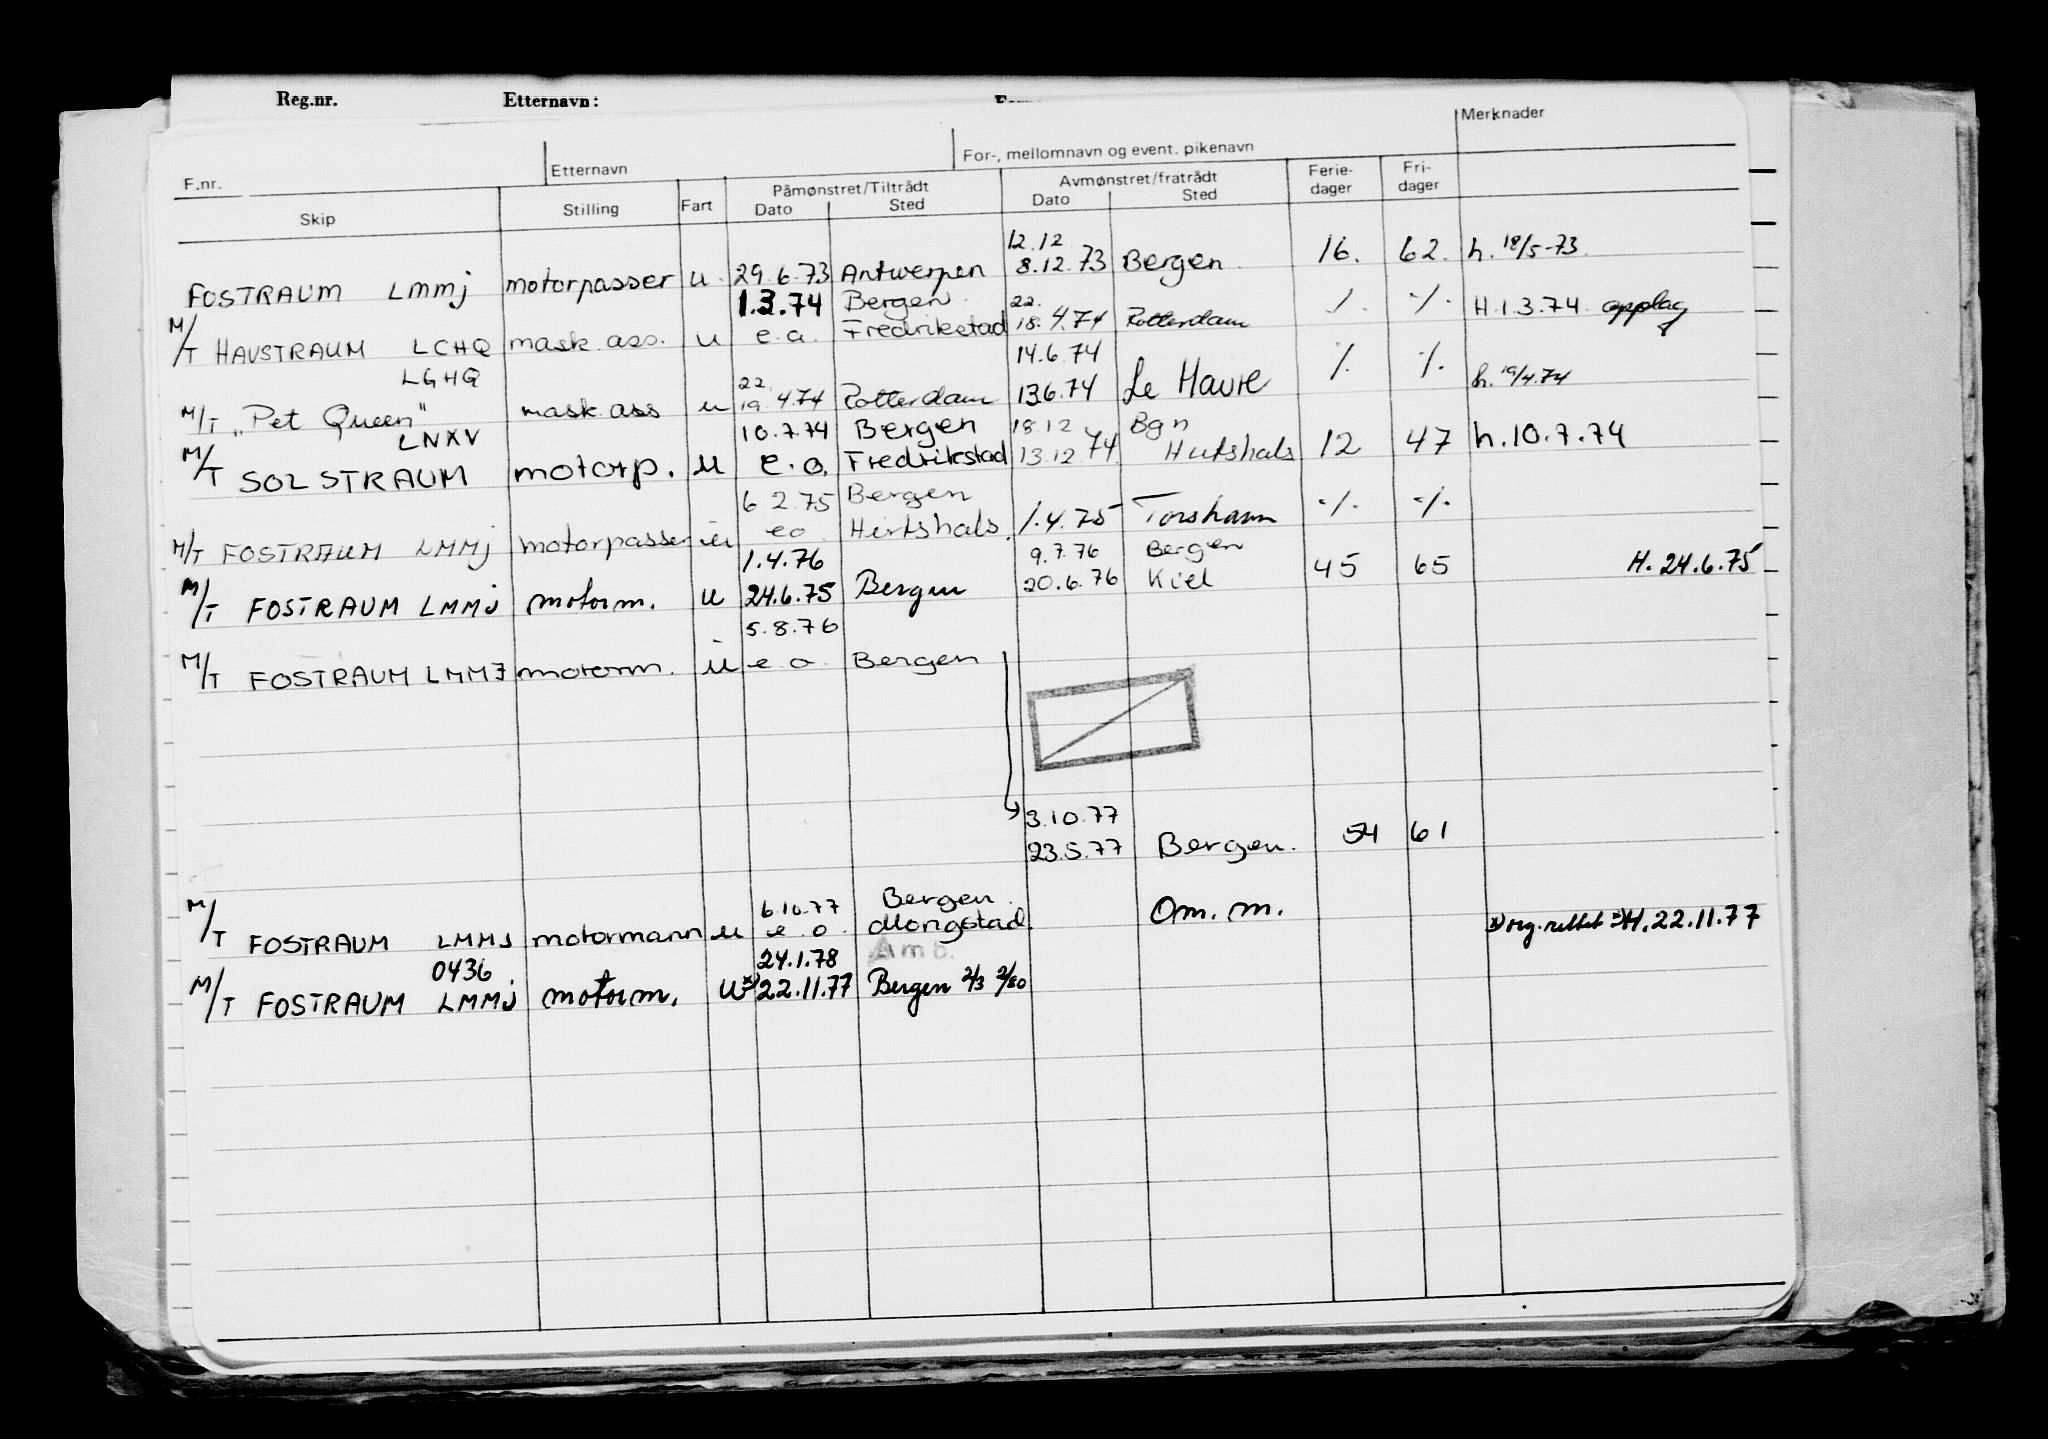 Reg.nr. Etternavn:
Merknader
F.nr. Etternavn For-, mellomnavn og event. pikenavn
Skip Stilling Fart Påmønstret/Tiltrådt Avmønstret/fratrådt Ferie-dager Fri-dager
Dato Sted Dato Sted
12.12
FOSTRAUM LMMJ motorpasser u. 29.6.73 Antwerpen 8.12.73 Bergen 16. 62. h. 18/5-73.
1.3.74 Bergen 22.
M/T HAVSTRAUM LCHQ mask.ass. u e.o. Fredrikstad 18.4.74 Rotterdam ./. ./. H.1.3.74 opplag
LGHQ 22. 14.6.74
M/T "Pet Queen" mask.ass u 19.4.74 Rotterdam 13.6.74 Le Havre ./. ./. h. 19/4.74
LNXV 10.7.74 Bergen 18.12 Bgn
M/T SOLSTRAUM motorp. u e.o. Fredrikstad 13.12.74 Hirtshals 12 47 h.10.7.74
6 2.75 Bergen
M/T FOSTRAUM LMMJ motorpasser u eo. Hirtshals. 1.4.75 Torshavn ./. ./.
1.4.76 9.7.76 Bergen
M/T FOSTRAUM LMMJ motorm. u 24.6.75 Bergen 20.6.76 Kiel 45 65 H. 24.6.75
5.8.76
M/T FOSTRAUM LMMJ motorm. u e.o. Bergen
3.10.77
23.5.77 Bergen. 54 61
6.10.77 Bergen.
M/T FOSTRAUM LMMJ motormann u e.o. Mongstad Om.m. x) org. rettet => H.22.11.77
0436 24.1.78 Amb.
M/T FOSTRAUM LMMJ motorm. u x) 22.11.77 Bergen 2/3 2/80